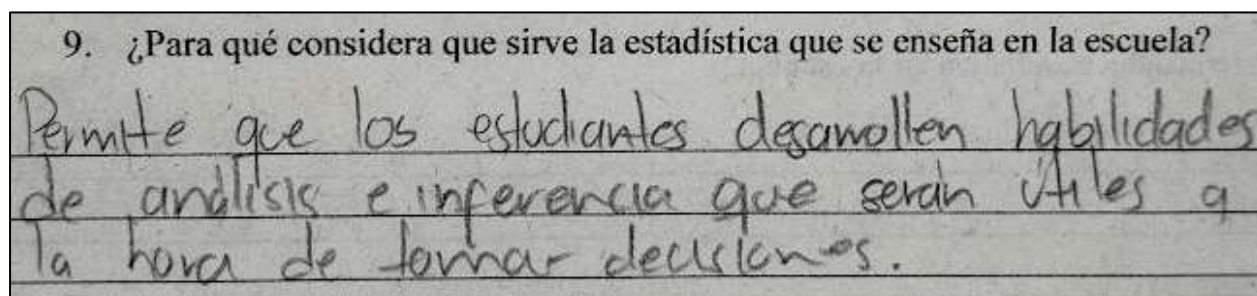 9. ¿Para qué considera que sirve la estadística que se enseña en la escuela?
Permite que los estudiantes desarrollen habilidades
de análisis e inferencia que serán útiles a
la hora de tomar decisiones.